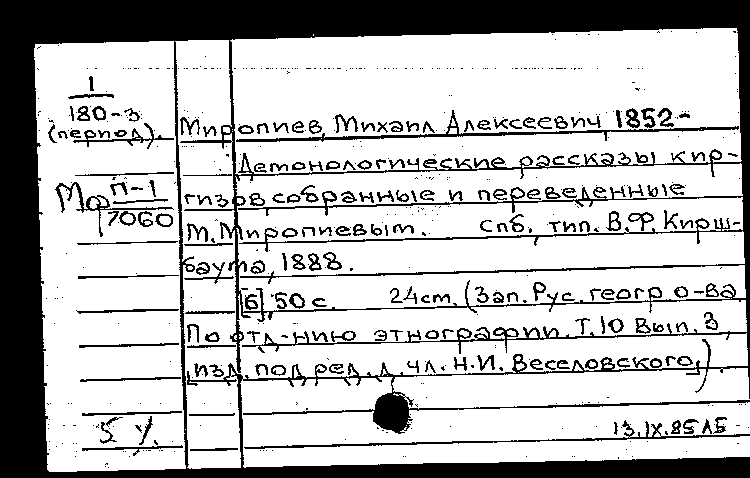 1
180-3
(период).
Миропиев, Михаил Алексеевич, 1852-
Демонологические рассказы кир-
Мф П-1
7060
гизов, собранные и переведенные
М. Миропиевым. Спб., тип. В.Ф. Кирш-
баума, 1888.
[6], 50 с. 24 cm. (Зап. Рус. геогр. о-ва
По отд-нию этнографии. Т. 10 Вып. 3,
[изд. под ред. д. чл. Н.И. Веселовского]).
13.IX.85 ЛБ